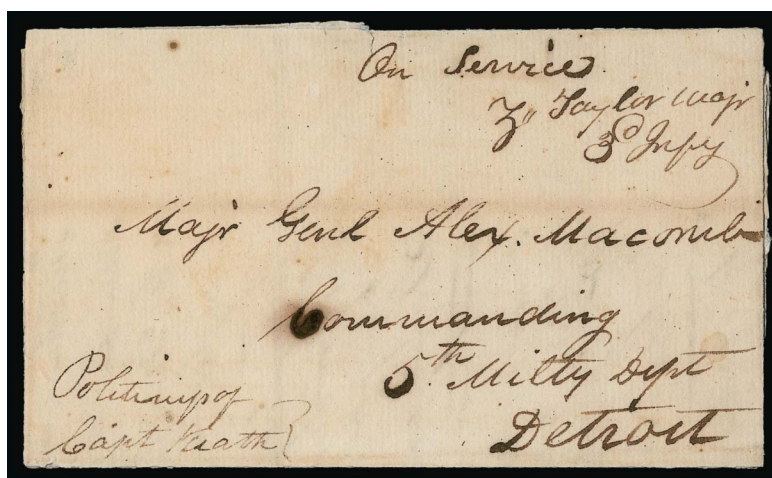 On Service
Z" Taylor Majr
3d Infy
Majr Genl Alex. Macomb
Commanding
5th Milty Dept
Detroit
Politeness of
Capt Keath